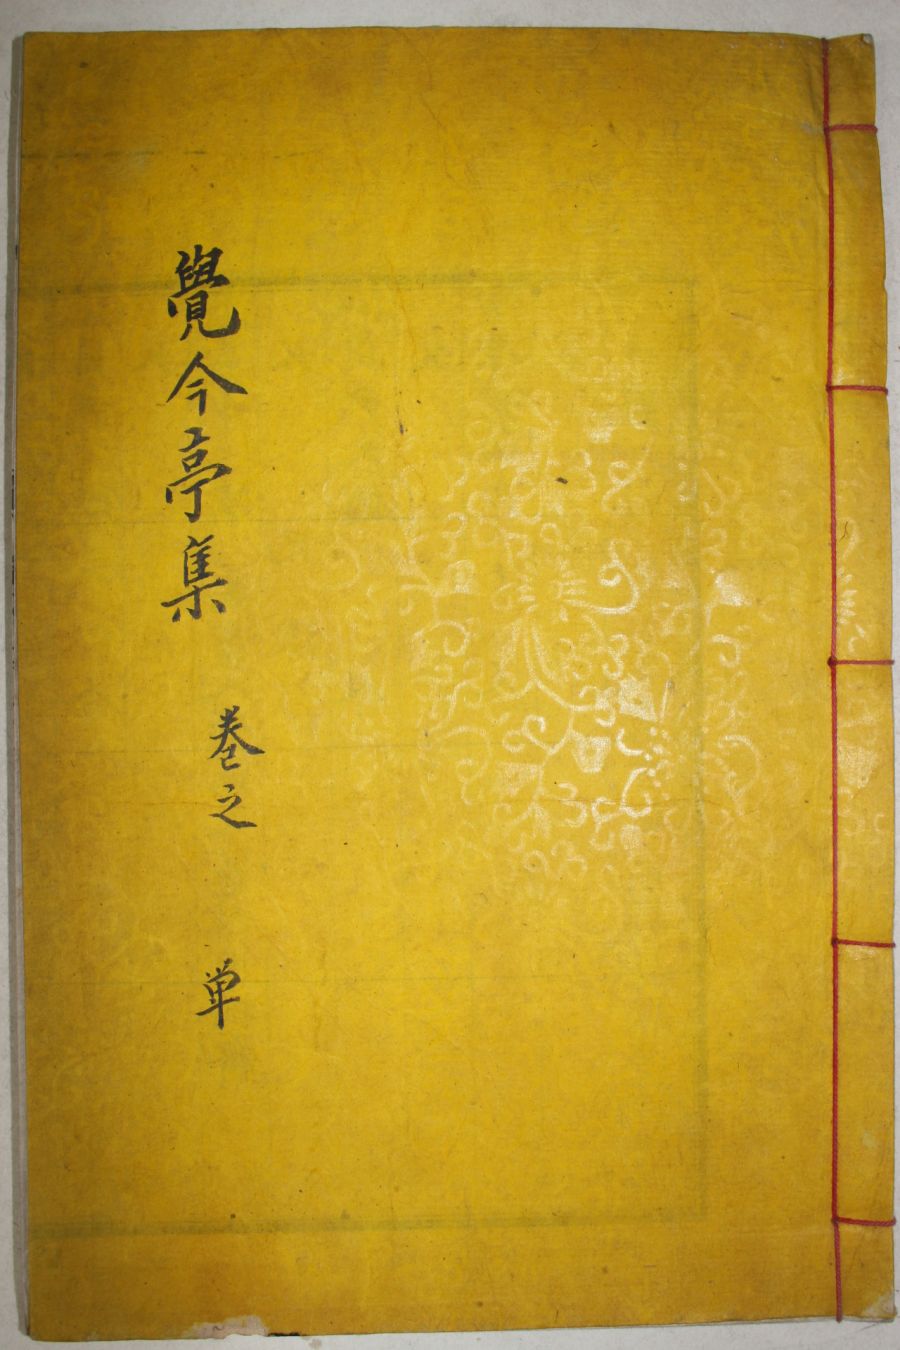 覺今亭集
卷之
单